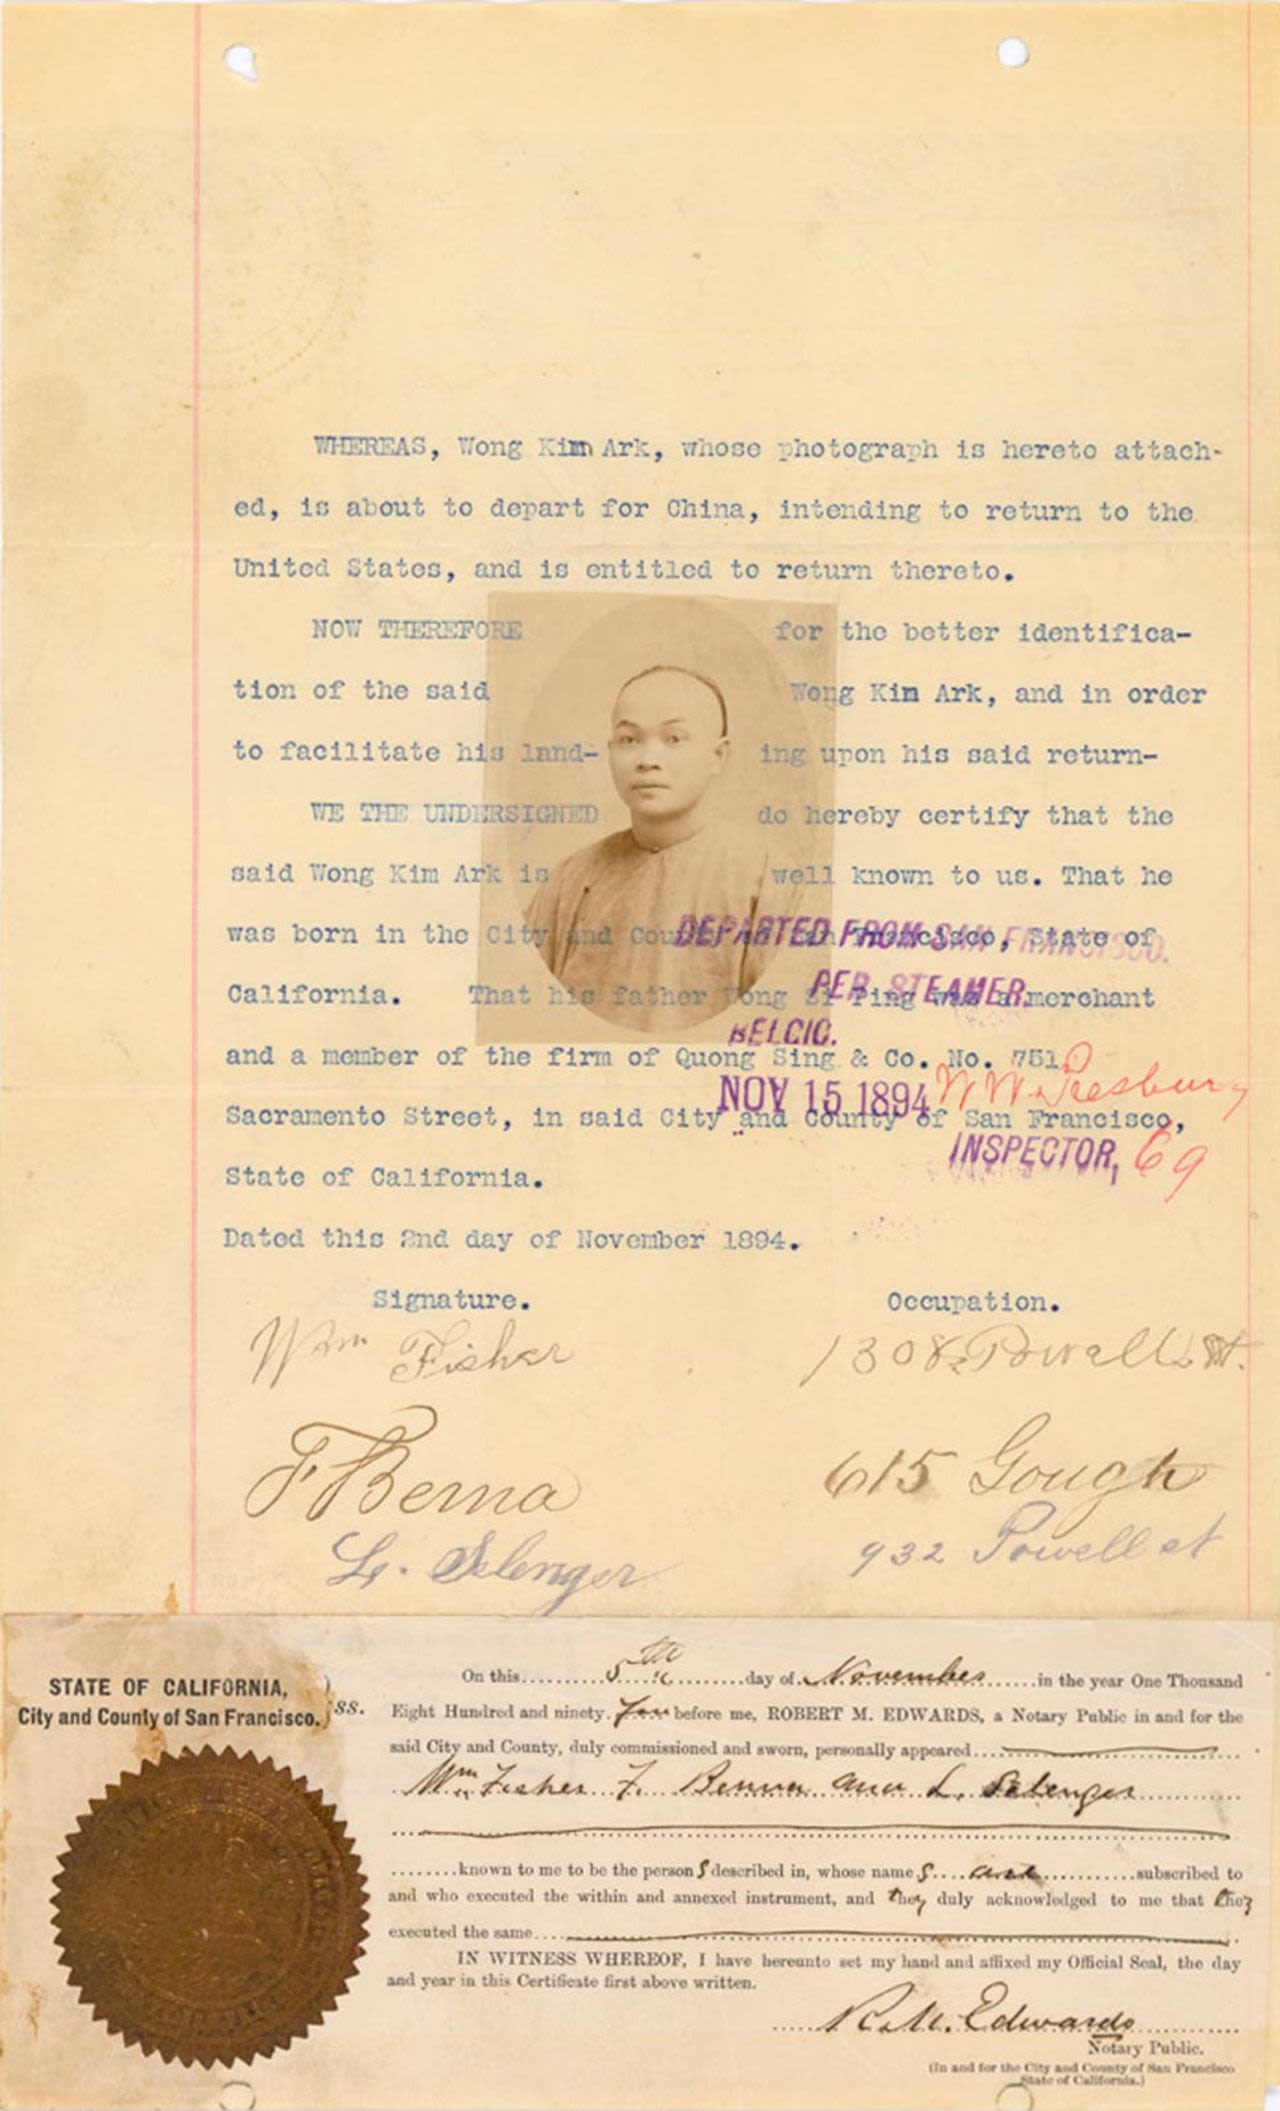 WHEREAS, Wong Kim Ark, whose photograph is hereto attach-
ed, is about to depart for China, intending to return to the
United States, and is entitled to return thereto.
NOW THEREFORE for the better identifica-
tion of the said Wong Kim Ark, and in order
to facilitate his land- ing upon his said return-
WE THE UNDERSIGNED do hereby certify that the
said Wong Kim Ark is well known to us. That he
was born in the City and County of San Francisco, State of
DEPARTED FROM SAN FRANCISCO.
California. That his father Wong Si Ping was a merchant
PER STEAMER,
BELGIC.
and a member of the firm of Quong Sing & Co. No. 751
NOV 15 1894
Sacramento Street, in said City and County of San Francisco,
INSPECTOR, 69
State of California.
Dated this 2nd day of November 1894.
Signature. Occupation.
Wm Fisher 1308½ Powell St.
F Benna 615 Gough
L. Selenger 932 Powell st
STATE OF CALIFORNIA,
City and County of San Francisco. } ss.
On this 5th day of November in the year One Thousand
Eight Hundred and ninety Four before me, ROBERT M. EDWARDS, a Notary Public in and for the
said City and County, duly commissioned and sworn, personally appeared
Wm Fisher F. Benna and L. Selenger
known to me to be the persons described in, whose names are subscribed to
and who executed the within and annexed instrument, and they duly acknowledged to me that they
executed the same
IN WITNESS WHEREOF, I have hereunto set my hand and affixed my Official Seal, the day
and year in this Certificate first above written.
R. M. Edwards
Notary Public.
(In and for the City and County of San Francisco
State of California.)